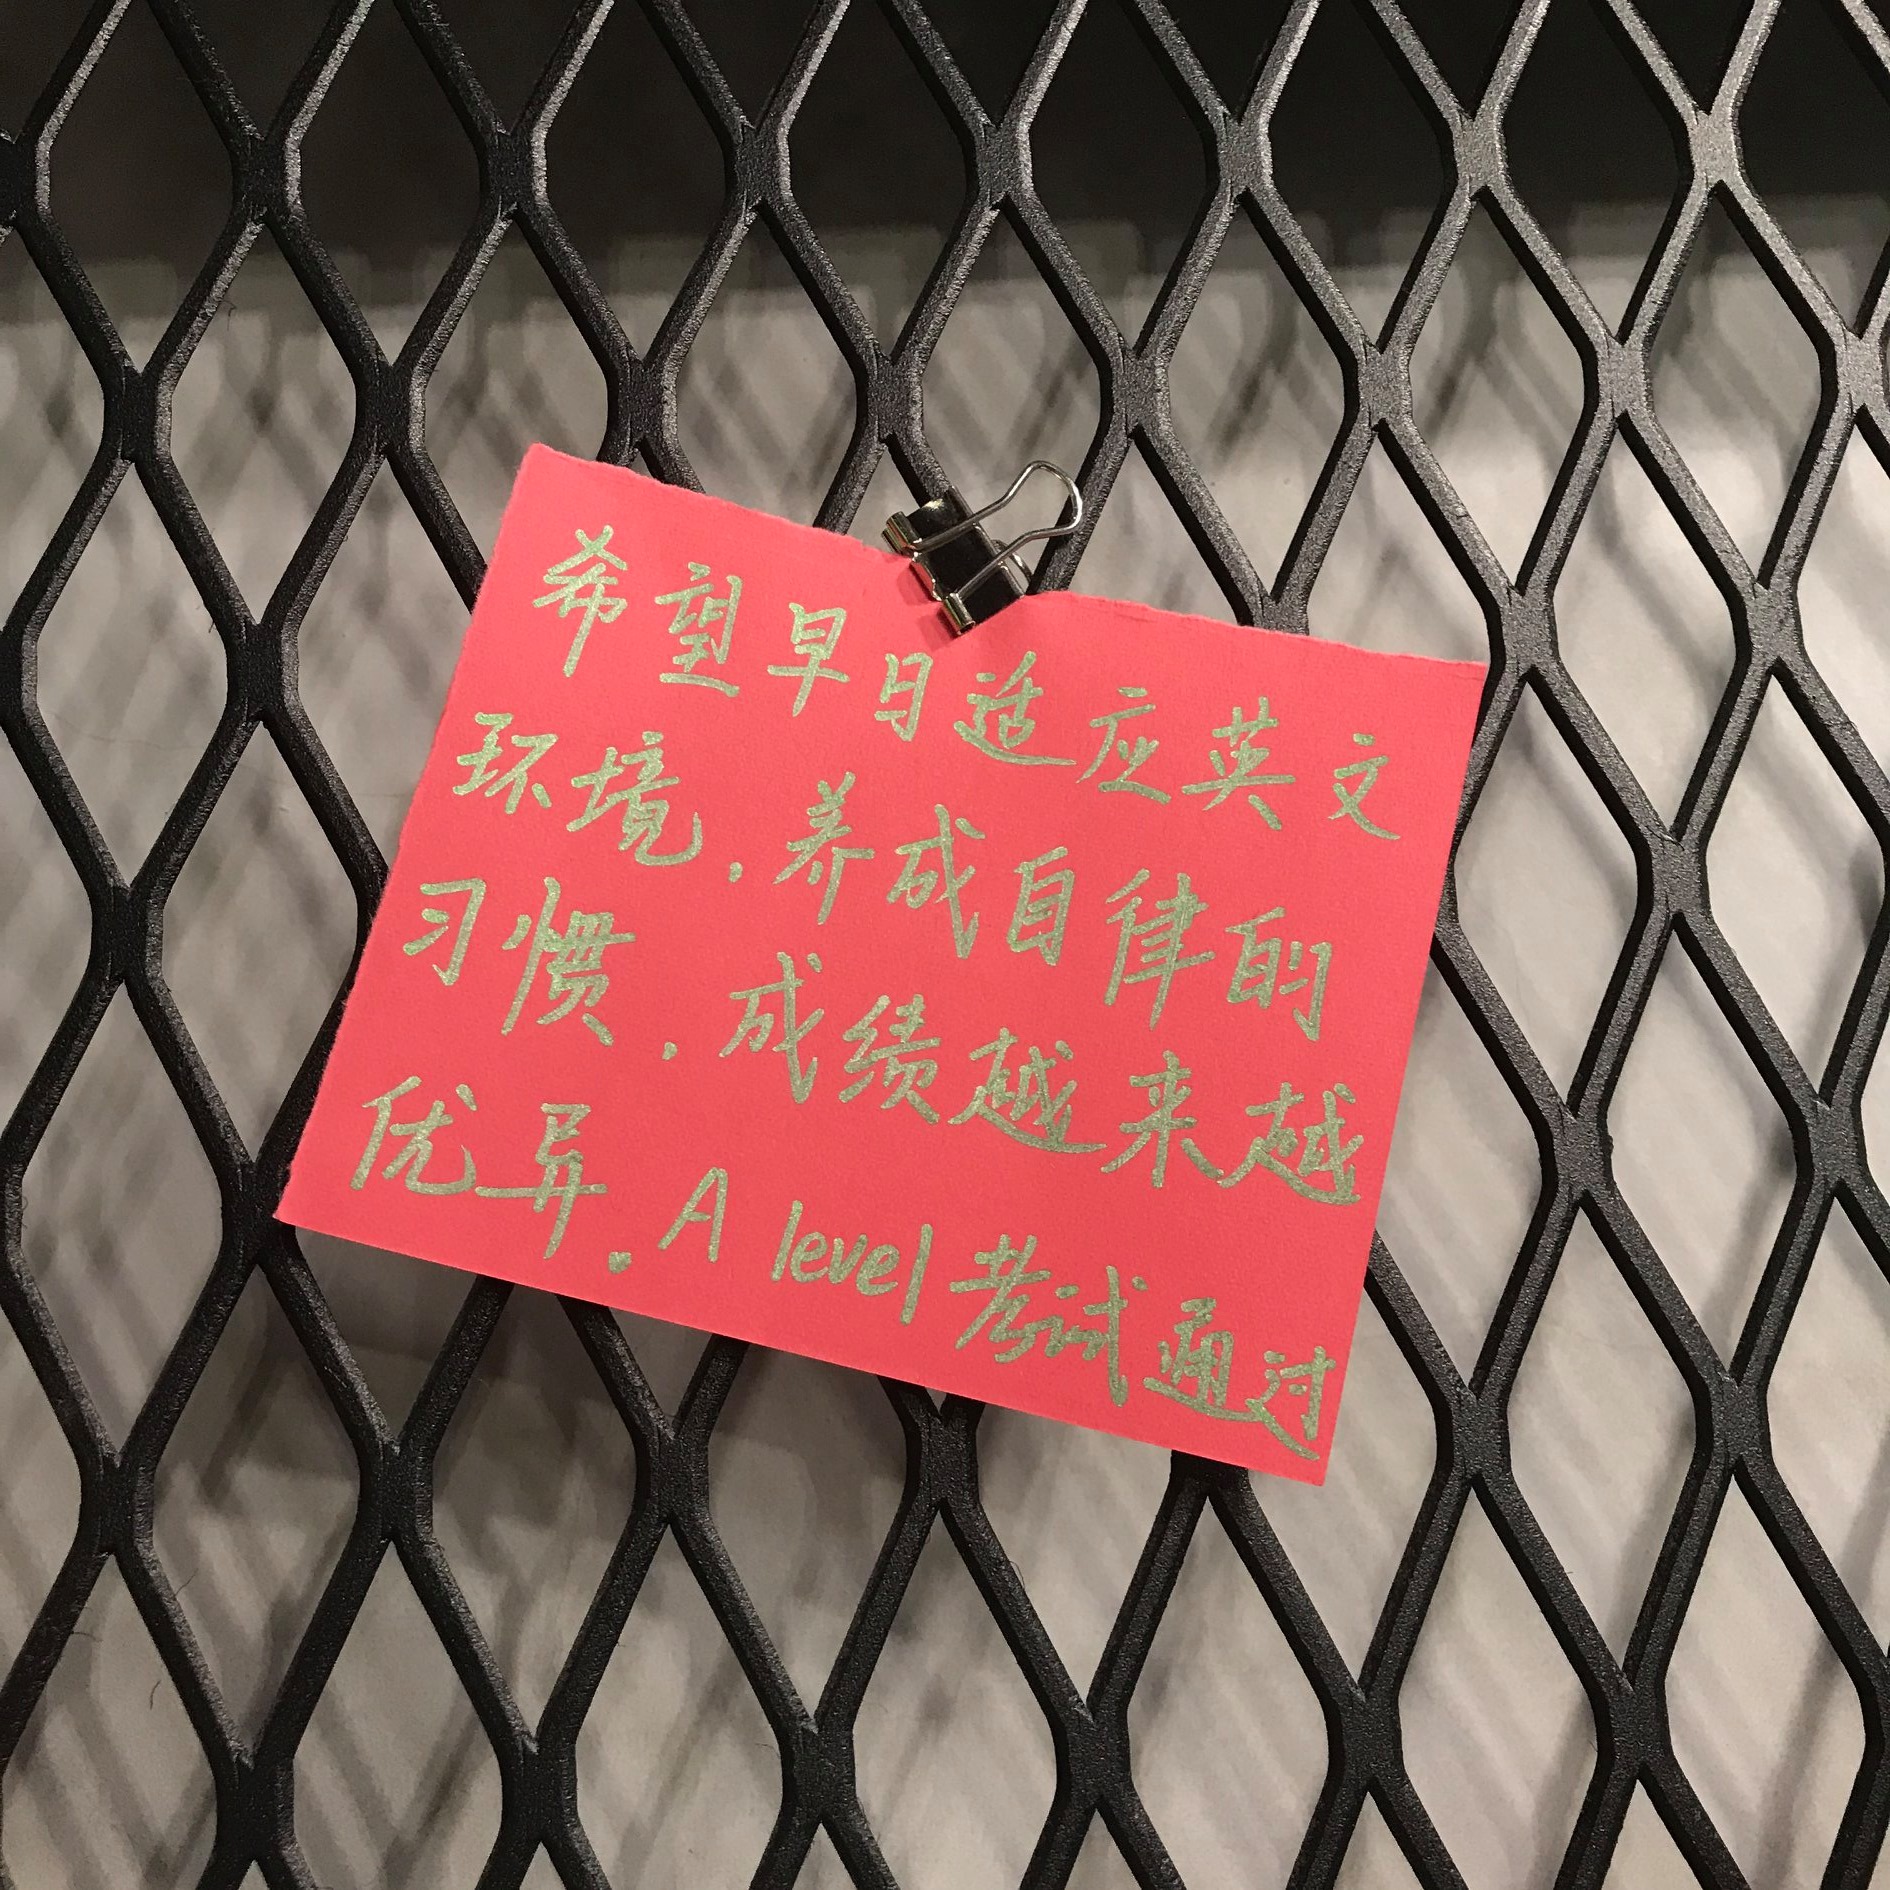 希望早日适应英文
环境，养成自律的
习惯，成绩越来越
优异，A level考试通过